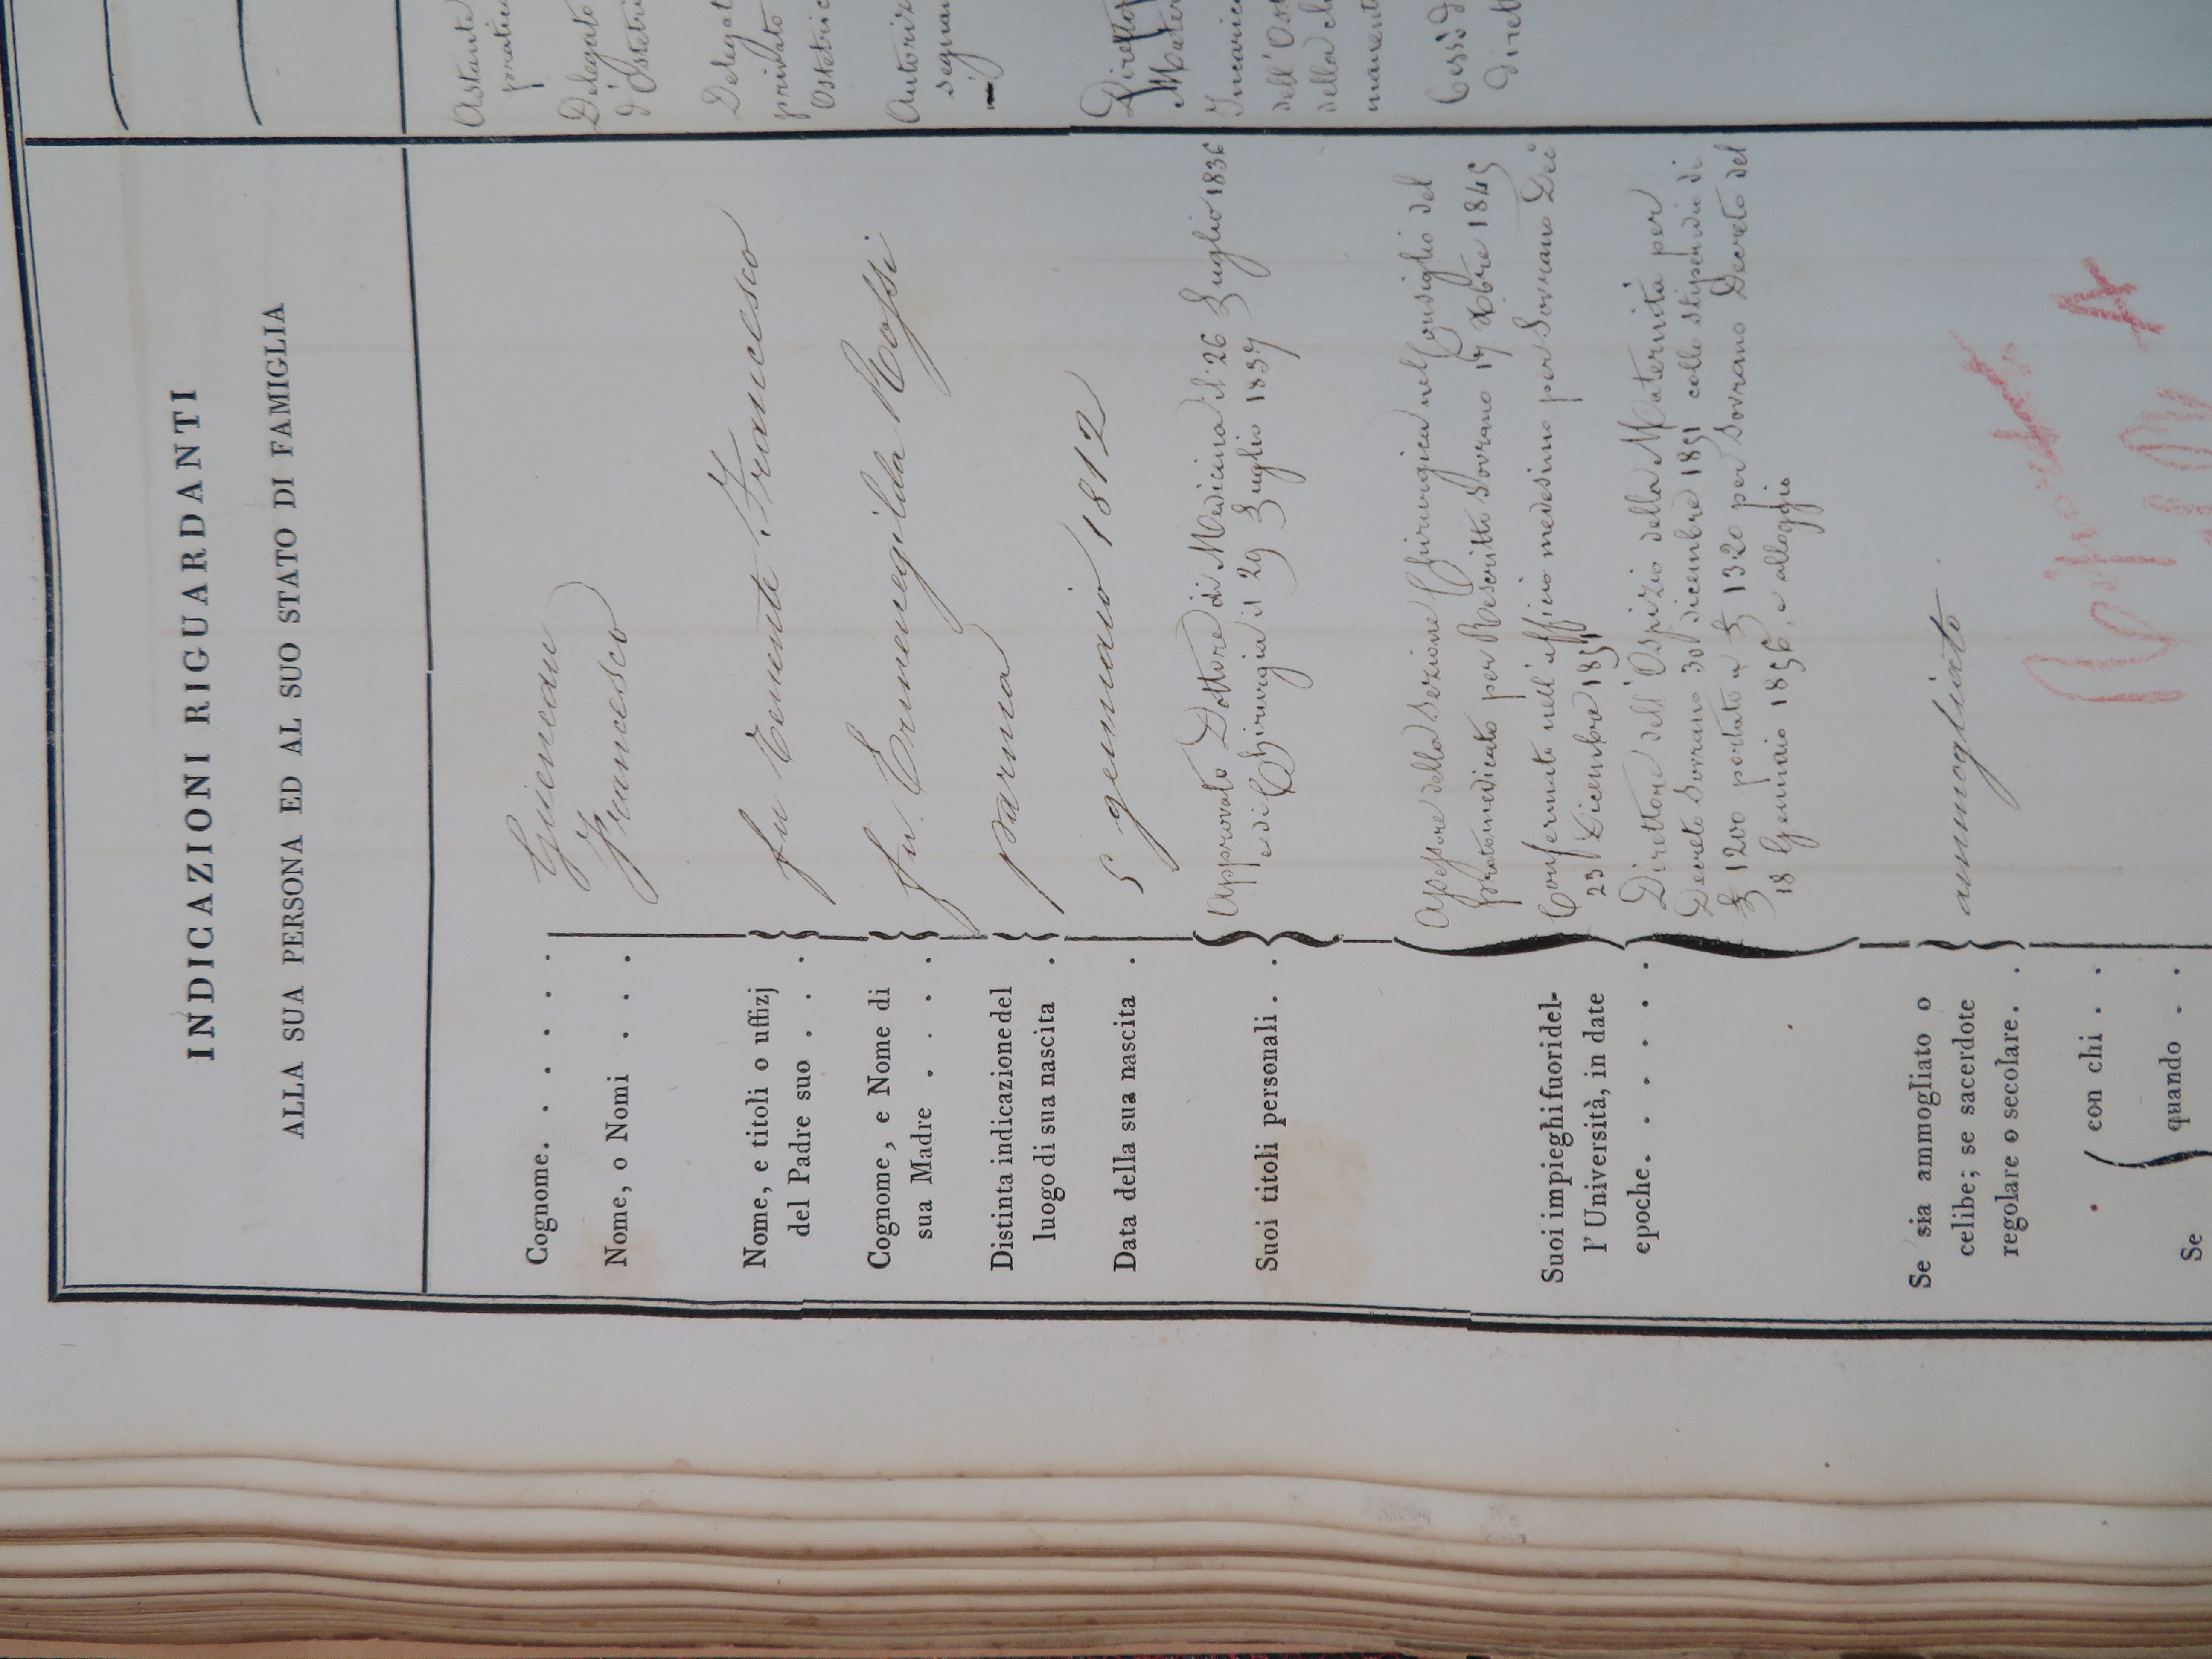 INDICAZIONI RIGUARDANTI
ALLA SUA PERSONA ED AL SUO STATO DI FAMIGLIA
Cognome. . . . . .
Nome, o Nomi . . .
Francesco
Nome, e titoli o uffizj
del Padre suo . . .
fu Tenente Francesco
Cognome, e Nome di
sua Madre . . . .
fu Ermenegilda Rossi
Distinta indicazione del
luogo di sua nascita .
Parma
Data della sua nascita .
5 gennaio 1812
Suoi titoli personali . .
Approvato Dottore di Medicina il 26 Luglio 1836
e di Chirurgia il 29 Luglio 1837
Suoi impieghi fuori del-
l' Università, in date
epoche. . . . . . .
Assessore della Sezione Chirurgica nel Consiglio del
protomedicato per Rescritto Sovrano 17 Xbre 1845
Confermato nell'ufficio medesimo per Sovrano Dec°
23 Dicembre
Direttore dell'Ospizio della Maternità per
Decreto Sovrano 30 dicembre 1851 collo stipendio di
£ 1200 portato a £ 1320 per Sovrano Decreto del
18 Gennaio 1856, e alloggio
Se sia ammogliato o
celibe; se sacerdote
regolare o secolare. .
ammogliato
con chi . .
quando . .
Se
Astante
pratic
Delegato
d'Ostetri
Delegat
privato
Ostetric
Autoriz
segnar
Direttor
Mater
Incaric
dell'Osp
della cl
manent
Cessò d
Dirett